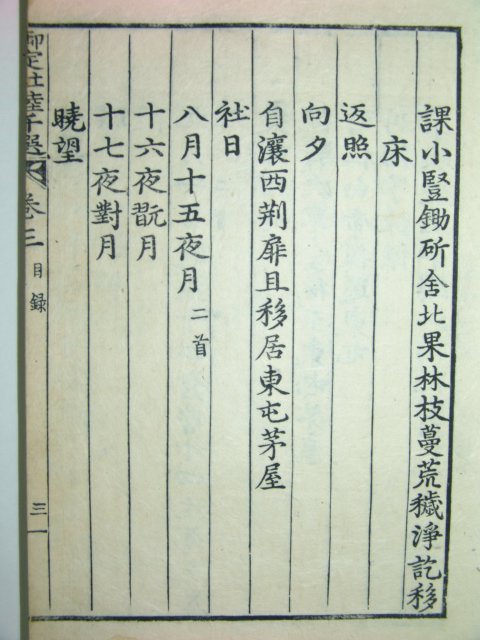 課小豎鋤斫舍北果林枝蔓荒穢淨訖移
床
返照
向夕
自瀼西荆扉且移居東屯茅屋
社日
八月十五夜月 二首
十六夜翫月
十七夜對月
曉望
御定杜陸千選 卷三 目錄 三